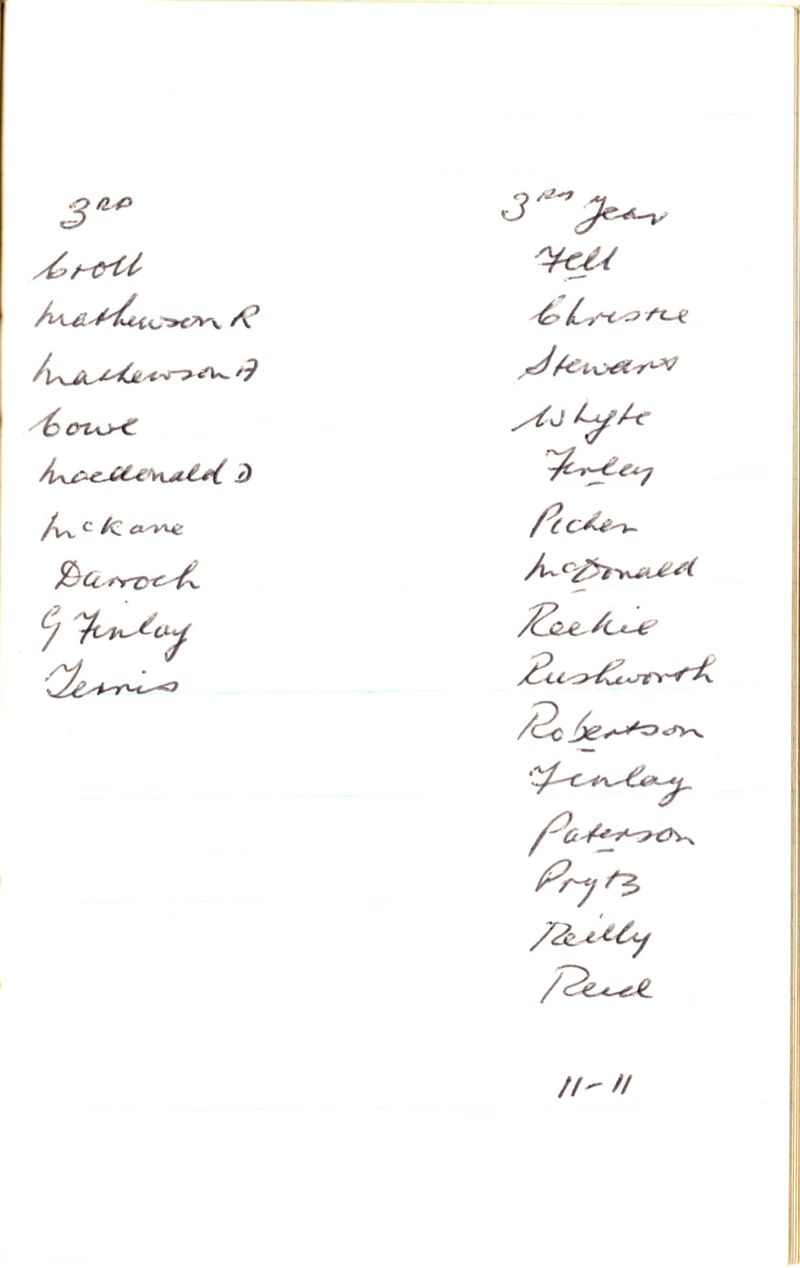 3RD
Croll
Mathewson R
Mathewson A
Cowe
Macdonald D
McKane
Darroch
G Finlay
Ferris
3RD Year
Fell
Christie
Stewart
Whyte
Finley
Picken
McDonald
Reekie
Rushworth
Robertson
Finlay
Paterson
Prytz
Reilly
Reid
11-11